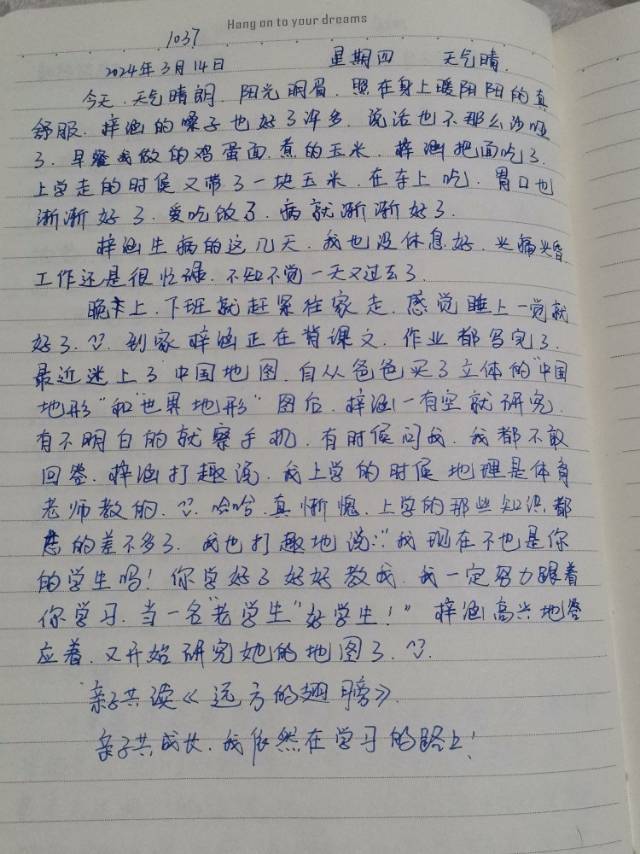 Hang on to your dreams
1037
2024年3月14日 星期四 天气晴.
今天.天气晴朗.阳光明眉.照在身上暖阳阳的真
舒服.梓涵的嗓子也好了许多.说话也不那么沙哑
了.早餐我做的鸡蛋面.煮的玉米.梓涵把面吃了.
上学走的时候又带了一块玉米.在车上吃.胃口也
渐渐好了.爱吃饭了.病就渐渐好了.
梓涵生病的这几天.我也没休息好.头痛头昏.
工作还是很忙碌.不知不觉一天又过去了.
晚上.下班就赶紧往家走.感觉睡上一觉就
好了.到家梓涵正在背课文.作业都写完了.
最近迷上了中国地图.自从爸爸买了立体的"中国
地形"和"世界地形"图后.梓涵一有空就研究.
有不明白的就察手机.有时候问我.我都不敢
回答.梓涵打趣说.我上学的时候地理是体育
老师教的.哈哈.真惭愧.上学的那些知识.都
忘的差不多了.我也打趣地说:"我现在不也是你
的学生吗!你学好了好好教我.我一定努力跟着
你学习.当一名"老学生"好学生!"梓涵高兴地答
应着.又开始研究她的地图了.
亲子共读《远方的翅膀》.
亲子共成长.我依然在学习的路上!